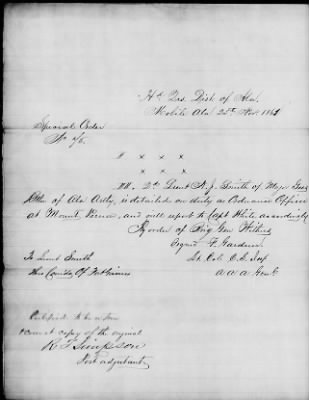 Hd Qrs Dist of Ala.
Mobile Ala 25th Nov. 1861
Special Order
No
II x x x
x x x
III. 2d Lieut N. J. Smith of Maj
Battn of Ala Arty, is detailed on duty as Ordnance Officer
at Mount Vernon, and will report to Capt White accordingly
By order of Brig Gen Withers
Signed F. Gardner
To Lieut Smith Lt. Col. C. S.
Thro Comdg Off Fort Gaines a a a Genl
Certified to be a true
correct copy of the original
R T Simpson
Post adjutant